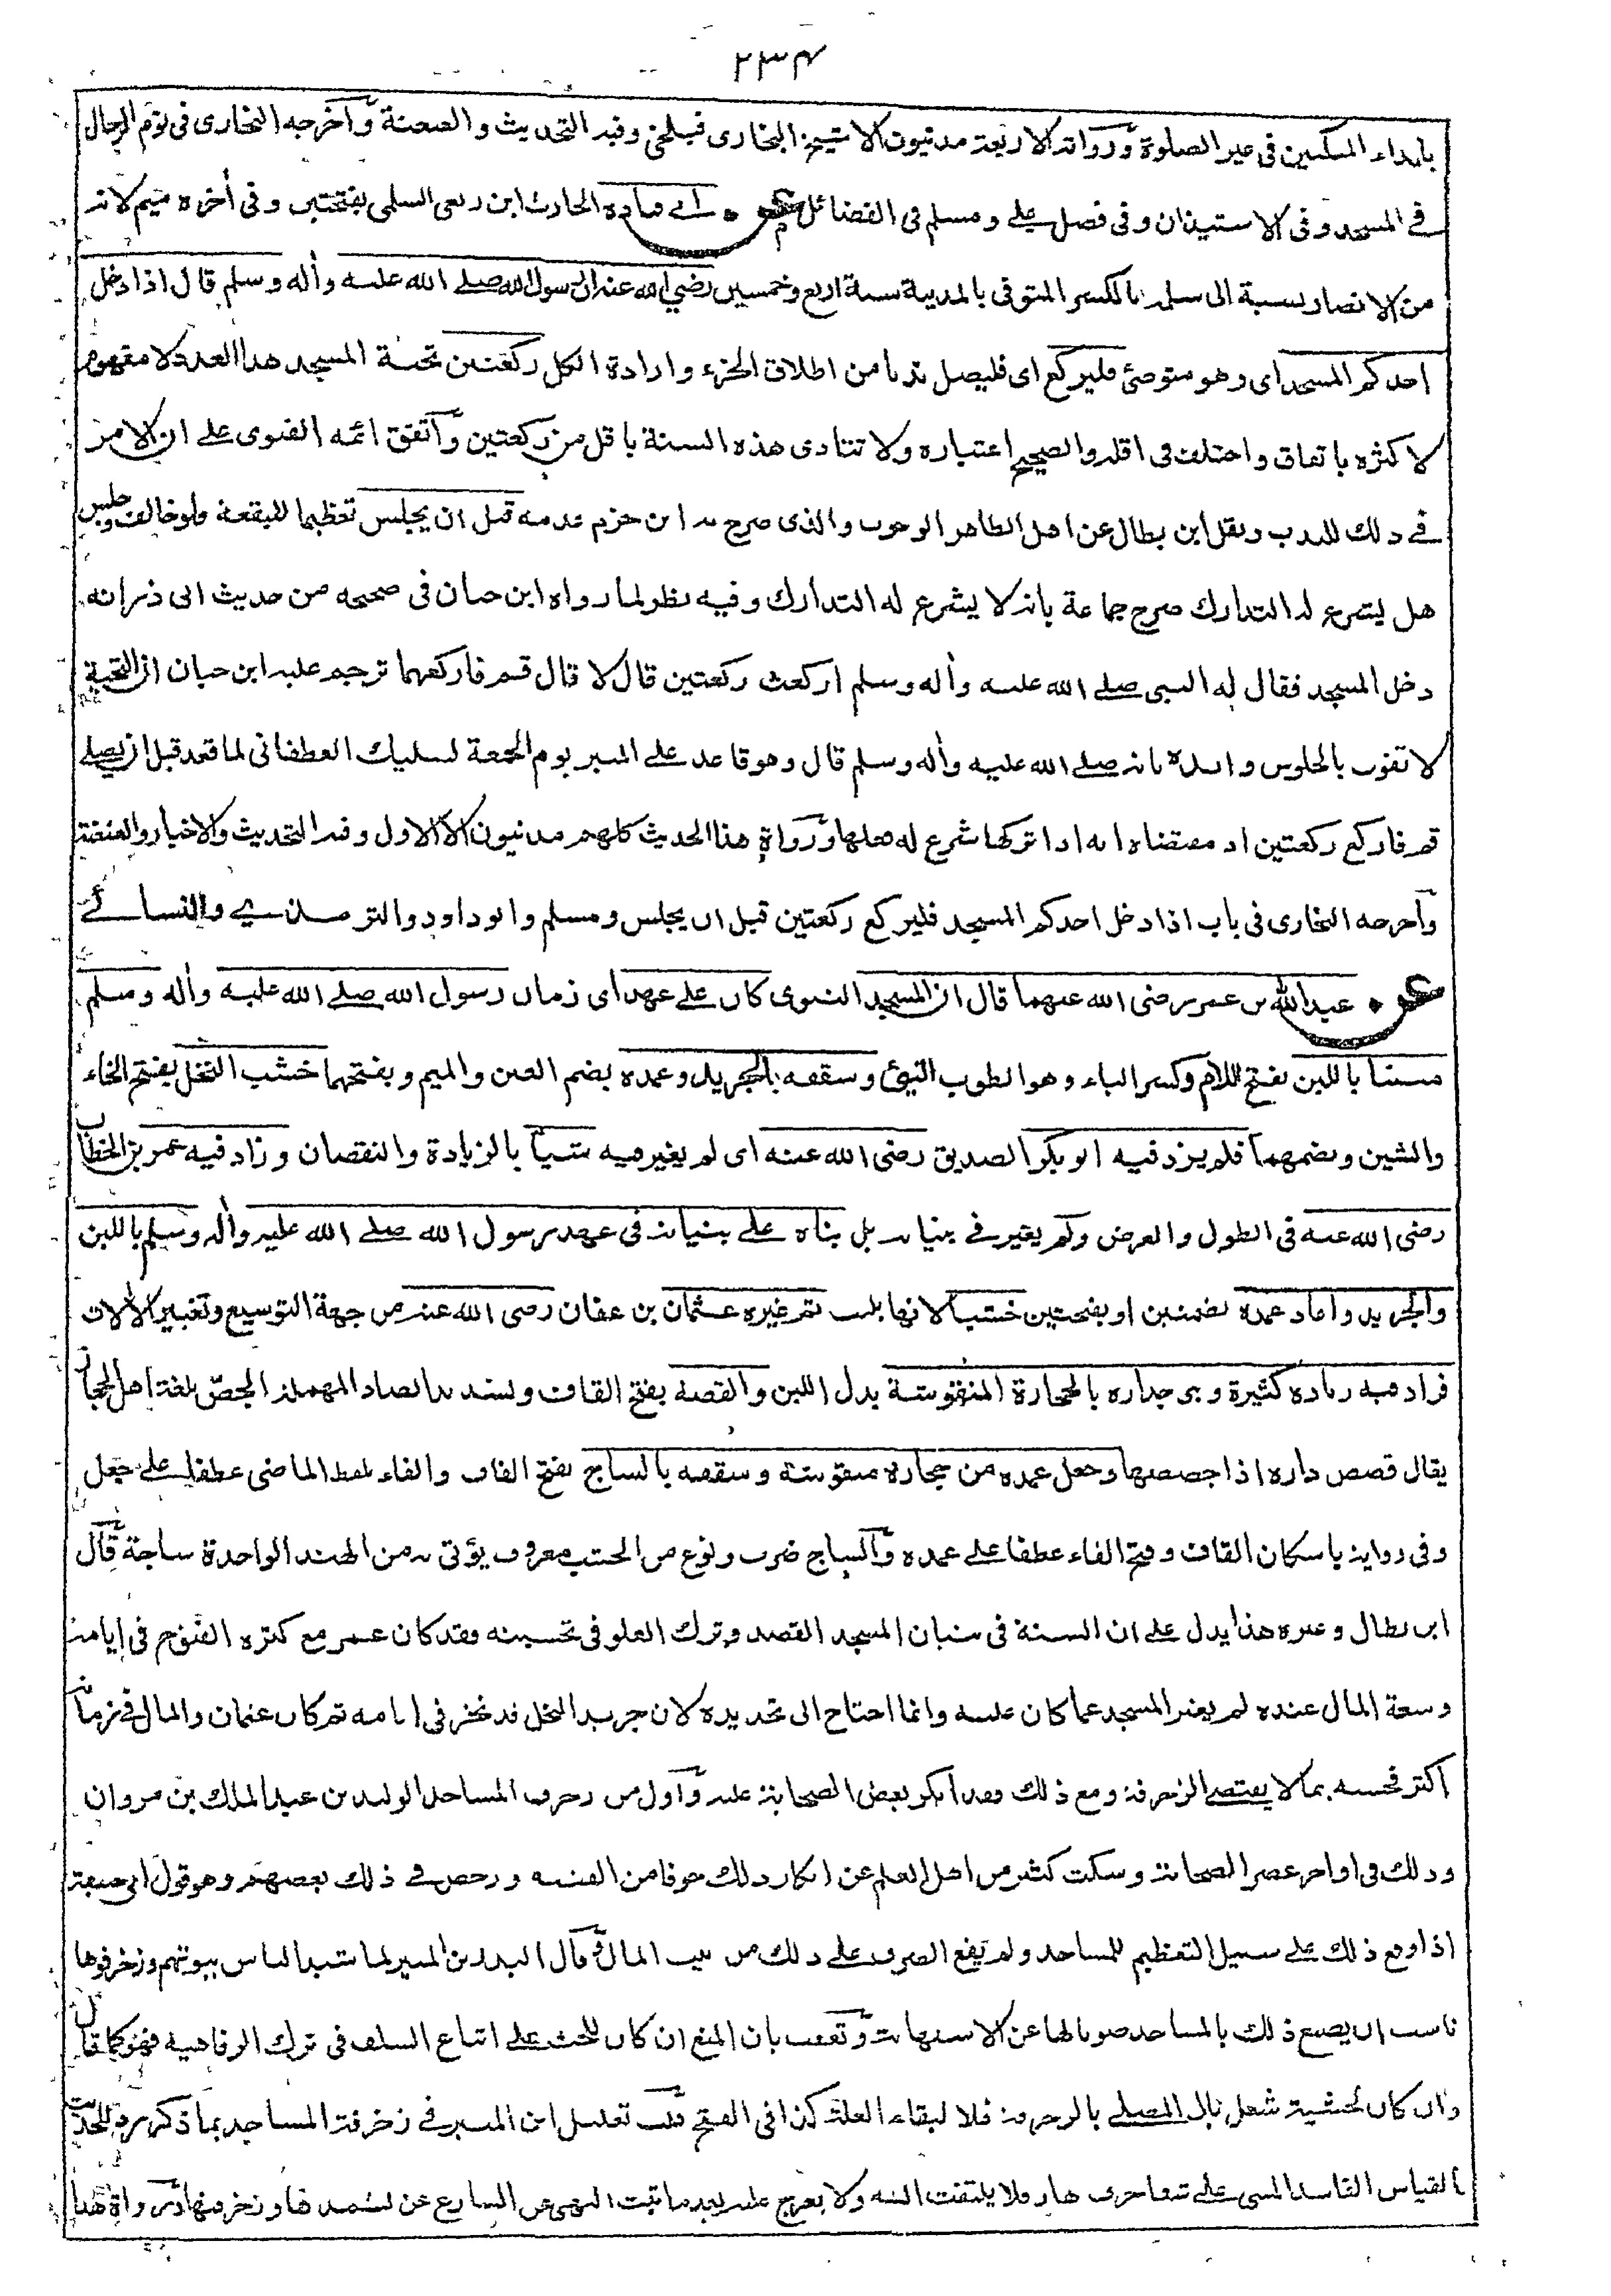 ٢٣٤
بايذاء المسكين فى غير الصلوة ورواته الاربعة مدنيون الا شيخ البخارى فبلخى وفيه التحديث والعنعنة وأخرجه البخارى فى نوم الرجال
فى المسجد وفى الاستيذان وفى فضل على ومسلم فى الفضائل عن ابى قتادة الحارث ابن ربعى السلمى بفتحتين وفى أخره ميم لانه
من الانصار نسبة الى سلمة بالكسر المتوفى بالمدينة سنة اربع وخمسين رضي الله عنه ان رسول الله صلى الله عليه وأله وسلم قال اذا دخل
احدكم المسجد اى وهو متوضئ فليركع اى فليصل ندبا من اطلاق الجزء وارادة الكل ركعتين تحية المسجد هذا العدد لا مفهوم
لاكثره باتفاق واختلف فى اقله والصحيح اعتباره ولا تتادى هذه السنة باقل من ركعتين وأتفق ائمة الفتوى على ان الامر
فى ذلك للندب ونقل ابن بطال عن اهل الظاهر الوجوب والذى صرح به ابن حزم عدمه قبل ان يجلس تعظيما للبقعة ولو خالف وجلس
هل يشرع له التدارك صرح جماعة بانه لا يشرع له التدارك وفيه نظر لما رواه ابن حبان فى صحيحه من حديث ابى ذر انه
دخل المسجد فقال له النبى صلى الله عليه وأله وسلم اركعت ركعتين قال لا قال قم فاركعهما ترجم عليه ابن حبان ان التحية
لا تفوت بالجلوس وايده بانه صلى الله عليه وأله وسلم قال وهو قاعد على المنبر يوم الجمعة لسليك الغطفانى لما قعد قبل ان يصلى
قم فاركع ركعتين اذ مقتضاه انه اذا تركها شرع له فعلها ورواة هذا الحديث كلهم مدنيون الا الاول وفيه التحديث والاخبار والعنعنة
وأخرجه البخارى فى باب اذا دخل احدكم المسجد فليركع ركعتين قبل ان يجلس ومسلم وابو داود والترمذى والنسائى
عن عبد الله بن عمر رضى الله عنهما قال ان المسجد النبوى كان على عهد اى زمان رسول الله صلى الله عليه وأله وسلم
مبنيا باللبن بفتح اللام وكسر الباء وهو الطوب النيئ وسقفه بالجريد وعمده بضم العين والميم وبفتحهما خشب النخل بفتح الخاء
والشين وبضمهما فلم يزد فيه ابو بكر الصديق رضى الله عنه اى لم يغير فيه شيأ بالزيادة والنقصان وزاد فيه عمر بن الخطاب
رضى الله عنه فى الطول والعرض ولم يغير فى بنيانه بل بناه على بنيانه فى عهد رسول الله صلى الله عليه وأله وسلم باللبن
والجريد واعاد عمده بضمتين او بفتحتين خشبا لانها بليت ثم غيره عثمان بن عفان رضى الله عنه من جهة التوسيع وتغيير الألات
فزاد فيه زيادة كثيرة وبنى جداره بالحجارة المنقوشة بدل اللبن والقصة بفتح القاف وتشديد الصاد المهملة الجصّ بلغة اهل الحجاز
يقال قصص داره اذا جصصها وجعل عمده من حجارة منقوشة وسقفه بالساج بفتح القاف والفاء بلفظ الماضى عطفا على جعل
وفى رواية باسكان القاف وفتح الفاء عطفا على عمده والساج ضرب ونوع من الخشب معروف يؤتى به من الهند الواحدة ساجة قال
ابن بطال وغيره هذا يدل على ان السنة فى بنيان المسجد القصد وترك الغلو فى تحسينه فقد كان عمر مع كثرة الفتوح فى ايامه
وسعة المال عنده لم يغير المسجد عما كان عليه وانما احتاج الى تجديده لان جريد النخل قد نخر فى ايامه ثم كان عثمان والمال فى زمانه
اكثر فحسنه بما لا يقتضى الزخرفة ومع ذلك فقد انكر بعض الصحابة عليه وأول من زخرف المساجد الوليد بن عبد الملك بن مروان
وذلك فى اواخر عصر الصحابة وسكت كثير من اهل العلم عن انكار ذلك خوفا من الفتنة ورخص فى ذلك بعضهم وهو قول ابى حنيفة
اذا وقع ذلك على سبيل التعظيم للمساجد ولم يقع الصرف على ذلك من بيت المال وقال البدر بن المنير لما شيد الناس بيوتهم وزخرفوها
ناسب ان يصنع ذلك بالمساجد صونا لها عن الاستهانة وتعقب بان المنع ان كان للحث على اتباع السلف فى ترك الرفاهية فهو كما قال
وان كان لخشية شغل بال المصلى بالزخرفة فلا لبقاء العلة كذا فى الفتح قلت تعليل ابن المنير فى زخرفة المساجد بما ذكر رد للحديث
بالقياس الفاسد المبنى على شفا جرف هار فلا يلتفت اليه ولا يعرج عليه بعد ما ثبت النهى عن الشارع عن تشييدها وزخرفتها ورواة هذا